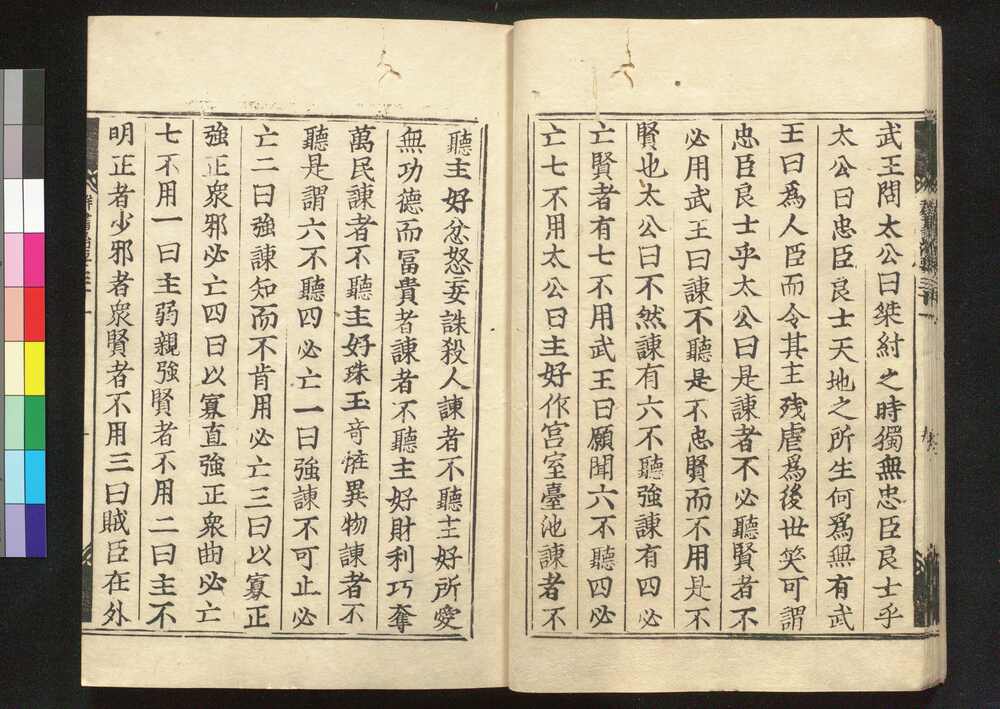 武王問太公曰桀紂之時獨無忠臣良士乎
太公曰忠臣良士天地之所生何爲無有武
王曰爲人臣而令其主残虐爲後世笑可謂
忠臣良士乎太公曰是諌者不必聽賢者不
必用武王曰諌不聽是不忠賢而不用是不
賢也太公曰不然諌有六不聽強諌有四必
亡賢者有七不用武王曰願聞六不聽四必
亡七不用太公曰主好作宮室臺池諌者不
聽主好忿怒妄誅殺人諌者不聽主好所愛
無功德而冨貴者諌者不聽主好財利巧奪
萬民諌者不聽主好珠玉竒恠異物諌者不
聽是謂六不聽四必亡一曰強諌不可止必
亡二曰強諌知而不肯用必亡三曰以寡正
強正衆邪必亡四曰以寡直強正衆曲必亡
七不用一曰主弱親強賢者不用二曰主不
明正者少邪者衆賢者不用三曰賊臣在外